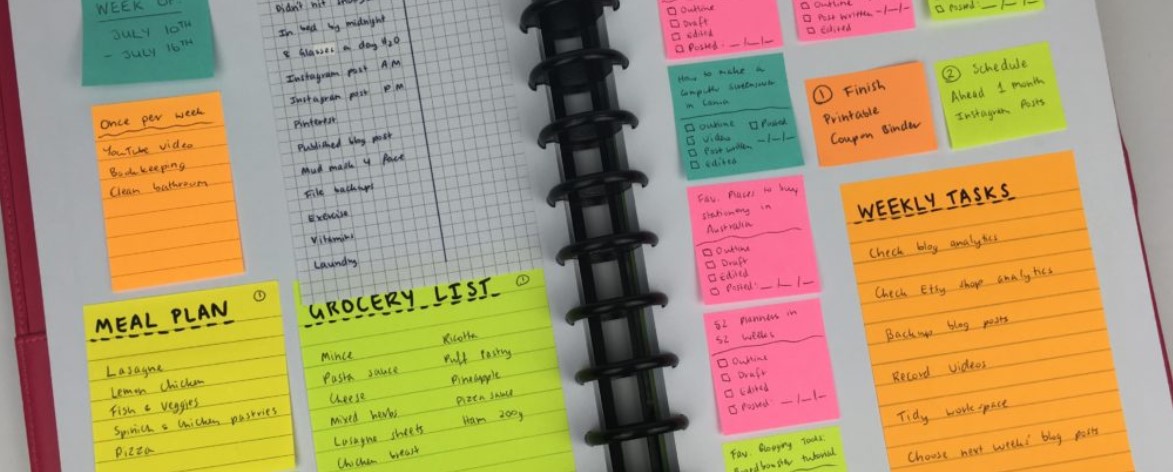 WEEK OF:
JULY 10TH
- JULY 16TH
Once per week
YouTube video
Bookkeeping
Clean bathroom
MEAL PLAN
Lasagne
Lemon Chicken
Fish & Veggies
Spinich & Chicken pastries
Pizza
Didn't hit
In bed by midnight
8 Glasses a day H2O
Instagram post A.M
Instagram post P.M
Pinterest
Published blog post
Mud mask 4 face
File backups
Exercise
Vitamins
Laundry
GROCERY LIST
Mince
Pasta sauce
Cheese
Mixed herbs
Lasagne sheets
Chicken breast
Ricotta
Puff Pastry
Pineapple
Pizza sauce
Ham 200g
Outline
Draft
Edited
Posted: _/_/_
Outline
Post written _/_/_
Edited
Posted: _/_/_
How to make a
Computer Screensaver
in Canva
Outline Posted
Video _/_/_
Post written
Edited
① Finish
Printable
Coupon Binder
② Schedule
Ahead 1 month
Instagram Posts
Fav. Places to buy
stationery in
Australia
Outline
Draft
Edited
Posted: _/_/_
52 Planners in
52 Weeks
Outline
Draft
Edited
Posted: _/_/_
Fav. Blogging Tools:
Boardbooster tutorial
WEEKLY TASKS
Check blog analytics
Check Etsy shop analytics
Backup blog posts
Record Videos
Tidy work space
Choose next weeks' blog posts